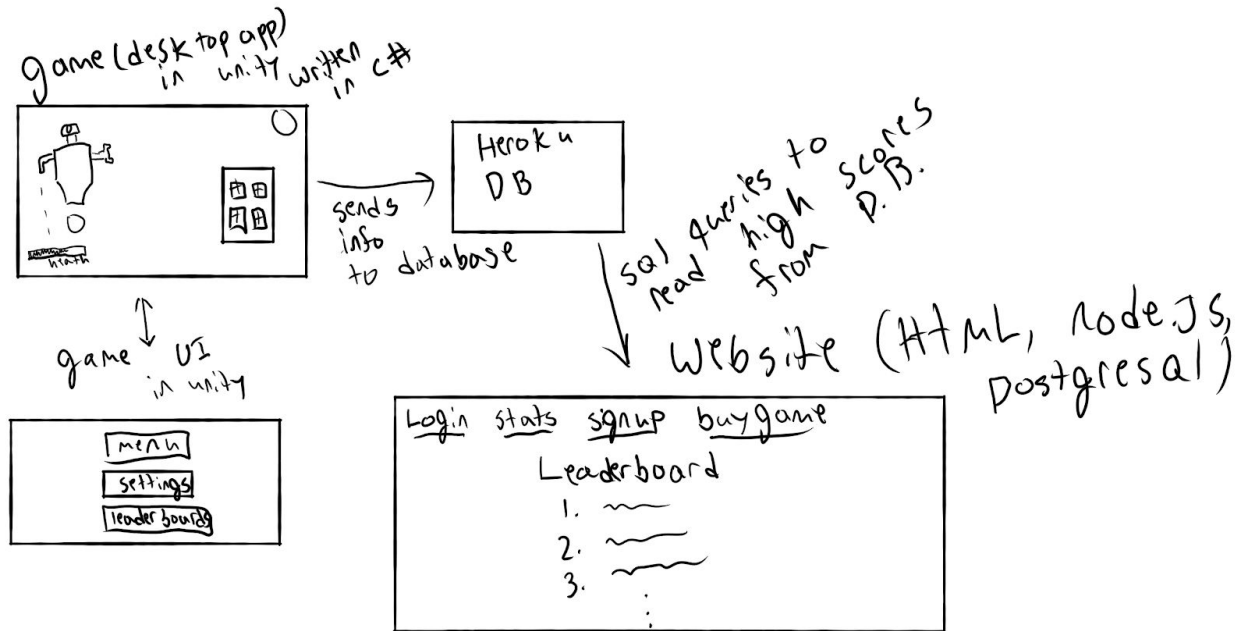 game (desktop app)
in unity written
in c#
heath
sends
info
to database
Heroku
DB
sql queries to
read high scores
from D.B.
game UI
in unity
menu
settings
leaderboards
Website (HTML, node.JS,
postgresql)
Login stats signup buy game
Leaderboard
1.
2.
3.